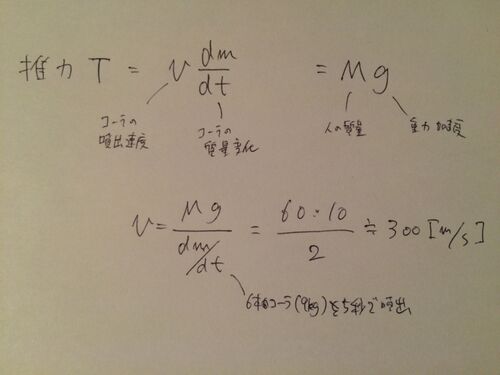 推力 T = v dm/dt = Mg
コーラの
噴出速度
コーラの
質量変化
人の質量
重力加速度
v = Mg / dm/dt = 60・10 / 2 ≒ 300 [m/s]
6本のコーラ(9kg)を5秒で噴出